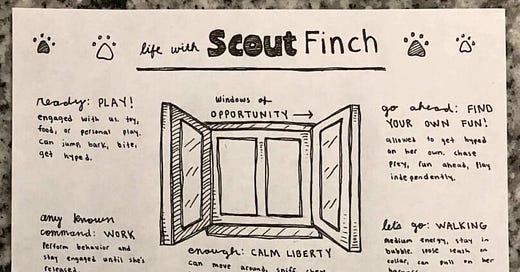 life with Scout Finch
ready: PLAY!
engaged with us, toy,
food, or personal play.
can jump, bark, bite,
get hyped.
Windows of
OPPORTUNITY →
go ahead: FIND
YOUR OWN FUN!
allowed to get hyped
on her own. chase
prey, run ahead, play
independently.
any known
command: WORK
Perform behavior and
stay engaged until she's
released.
enough: CALM LIBERTY
can move around, sniff, chew
let's go: WALKING
medium energy, stay in
bubble. loose leash on
collar, can pull on her
harness